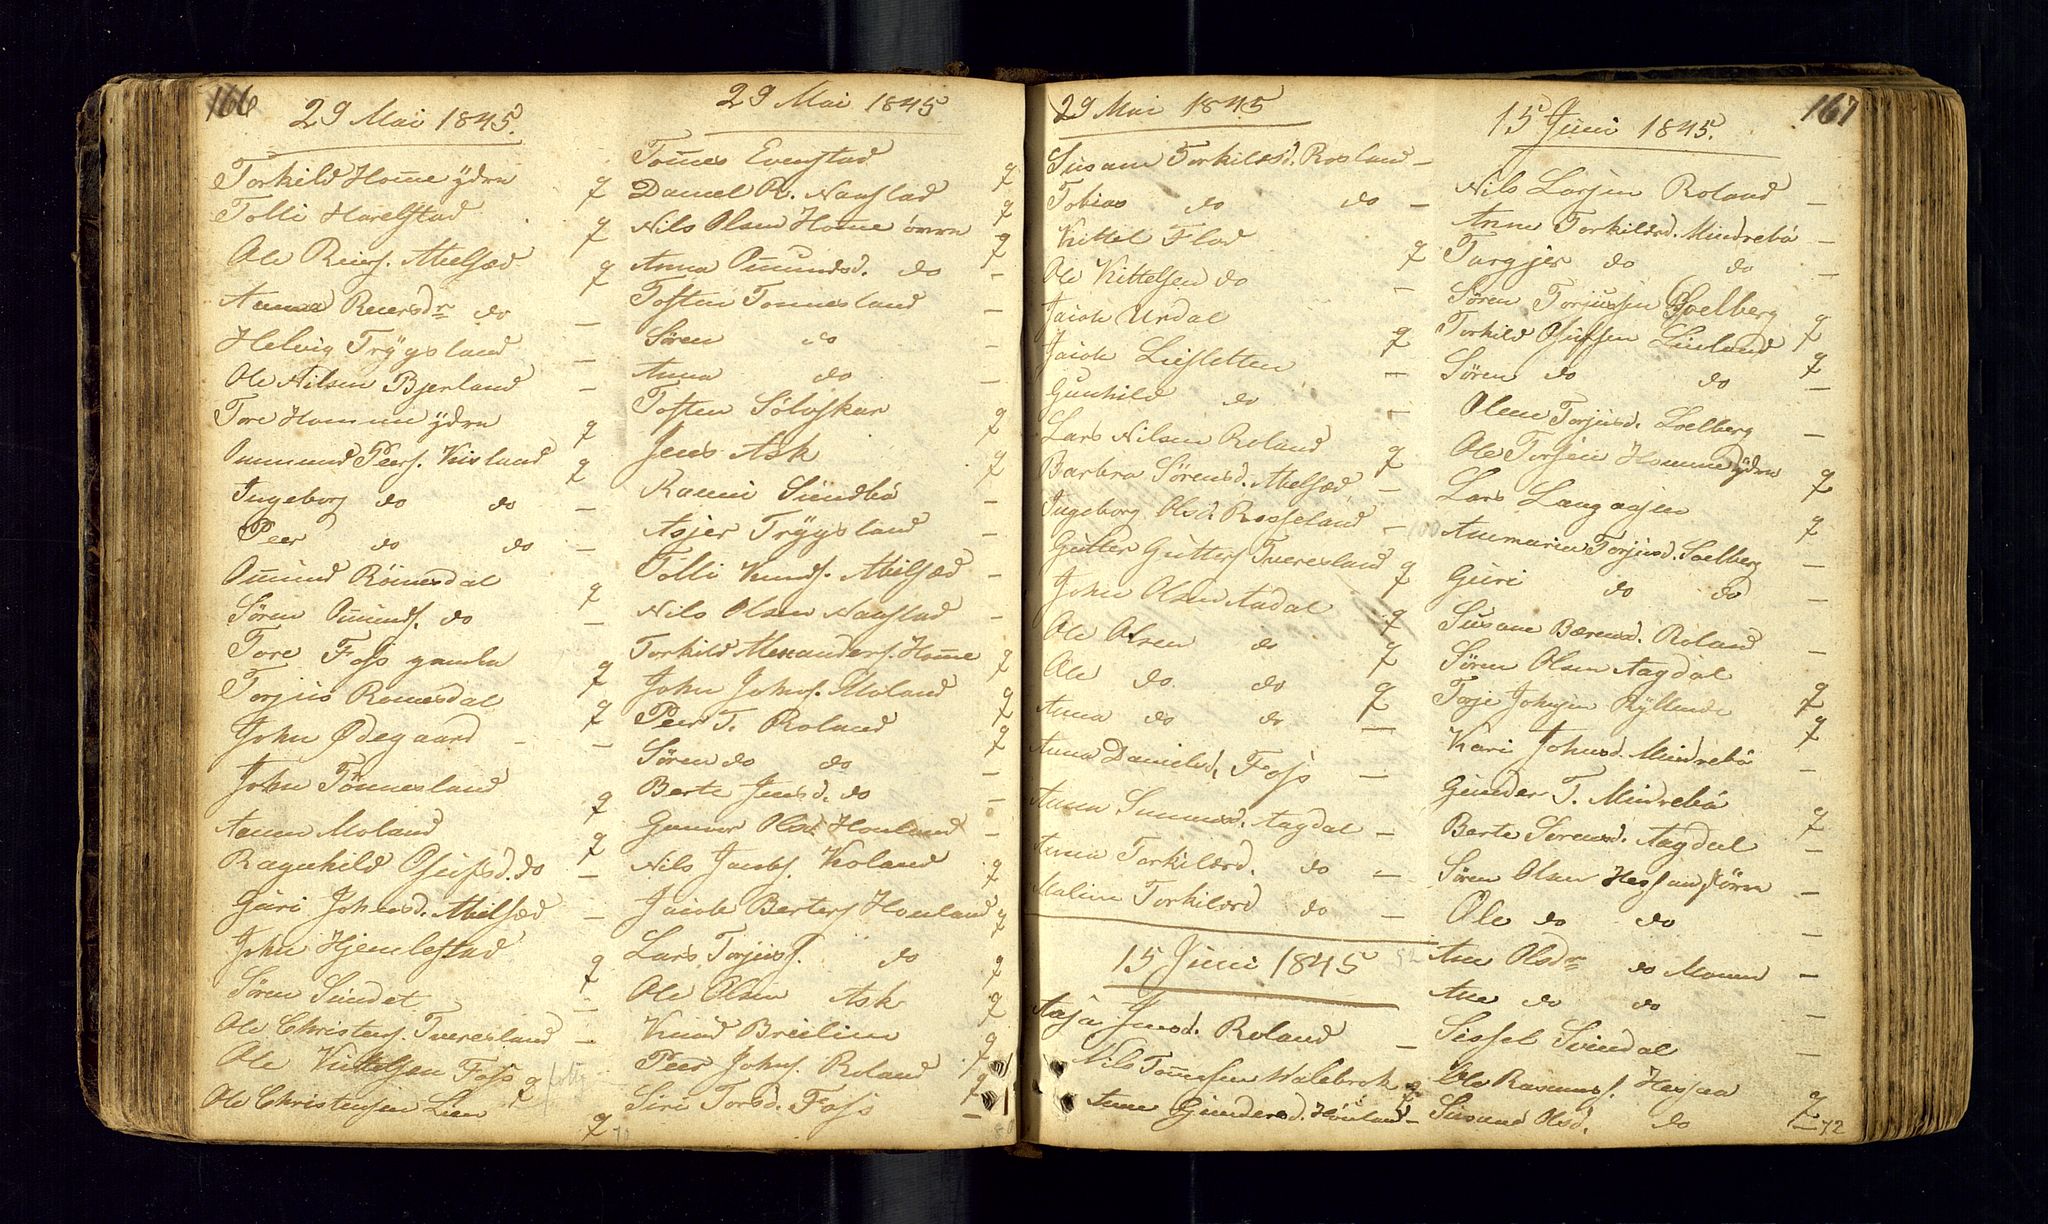 166
29 Mai 1845.
Torkild Home ydre q
Tolli Harelstad q
Ole Reiers. Mielsæd q
Anna Reiersdr do –
Helvig Trÿgsland –
Ole Nilsen Bjerland –
Tore Homme ydre q
Ommund Peers. Kisland q
Ingeborg do do –
Peer do do –
Omund Römesdal q
Sören Omunds. do –
Tore Foss gamle q
Torjus Romesdal q
John Ødegaard –
John Tönnesland q
Aanen Moland q
Ragnhild Oseifsd. do –
Guri Johnsd. Mielsæd –
John Hjemlestad q
Sören Sundet –
Ole Christens. Tveresland –
Ole Kittelsen Foss q
Ole Christensen Lien q
29 Mai 1845
Tönnes Evenstad q
Daniel R. Naastad q
Nils Olsen Home övere q
Anna Omundsd. do –
Tosten Tonnesland –
Sören do –
Anna do –
Tosten Sölvskar q
Jens Ask q
Ranni Sundbö –
Asjer Trÿgsland –
Tolli Knuds. Mielsæd –
Nils Olsen Naastad –
Torkild Alexanders. Home q
John Johns. Moland q
Peer T. Roland q
Sören do do –
Berte Jensd. do –
Gunvor Olsd Houland –
Nils Jacobs. Roland q
Jacob Berters Houland q
Lars Torjuss. do q
Ole Olsen Ask q
Knud Breilien q
Peer Johns. Roland q
Siri Torsd. Foss –
29 Mai 1845
Susane Torkildsd. Rosland –
Tobias do do –
Kittel Flad q
Ole Kittelsen do –
Jacob Urdal q
Jacob Liesletten –
Gunhild do –
Lars Nilsen Roland q
Barbra Sörensd. Mielsæd –
Ingeborg Olsd. Rosseland –
Gutter Gutters Tveresland q
John Olsen Aadal q
Ole Olsen do q
Ole do do q
Anna do do –
Anna Danielsd. Foss –
Anna Simensd. Aagdal –
Anna Torkildsd. do –
Maline Torkildsd do –
15 Juni 1845
Aasa Jensd. Roland –
Nils Tönnesen Walebrok q
Anne Gundersd. Houland –
167
15 Juni 1845.
Nils Larsen Roland –
Anne Torkildsd. Mindrebö –
Targjer do do –
Sören Torjussen Soelberg q
Torkild Osufsen Lieland q
Sören do do –
Olene Torjusd. Soelberg –
Ole Torjsen Homme ydre q
Lars Langaasen q
Annmarie Torjusd. Soelberg –
Guri do do –
Susane Bærensd. Roland –
Sören Olsen Aagdal q
Terje Johnsen Kÿllende q
Kari Johnsd. Mindrebö –
Gunder T. Mindrebö q
Berte Sörensd. Aagdal –
Sören Olsen Hessaa större –
Ole do do –
Ane Olsdr do Monen –
Ane do do –
Sissel Svindal –
Ole Rasmuss. Hessaa q
Susane Olsd. do –
72